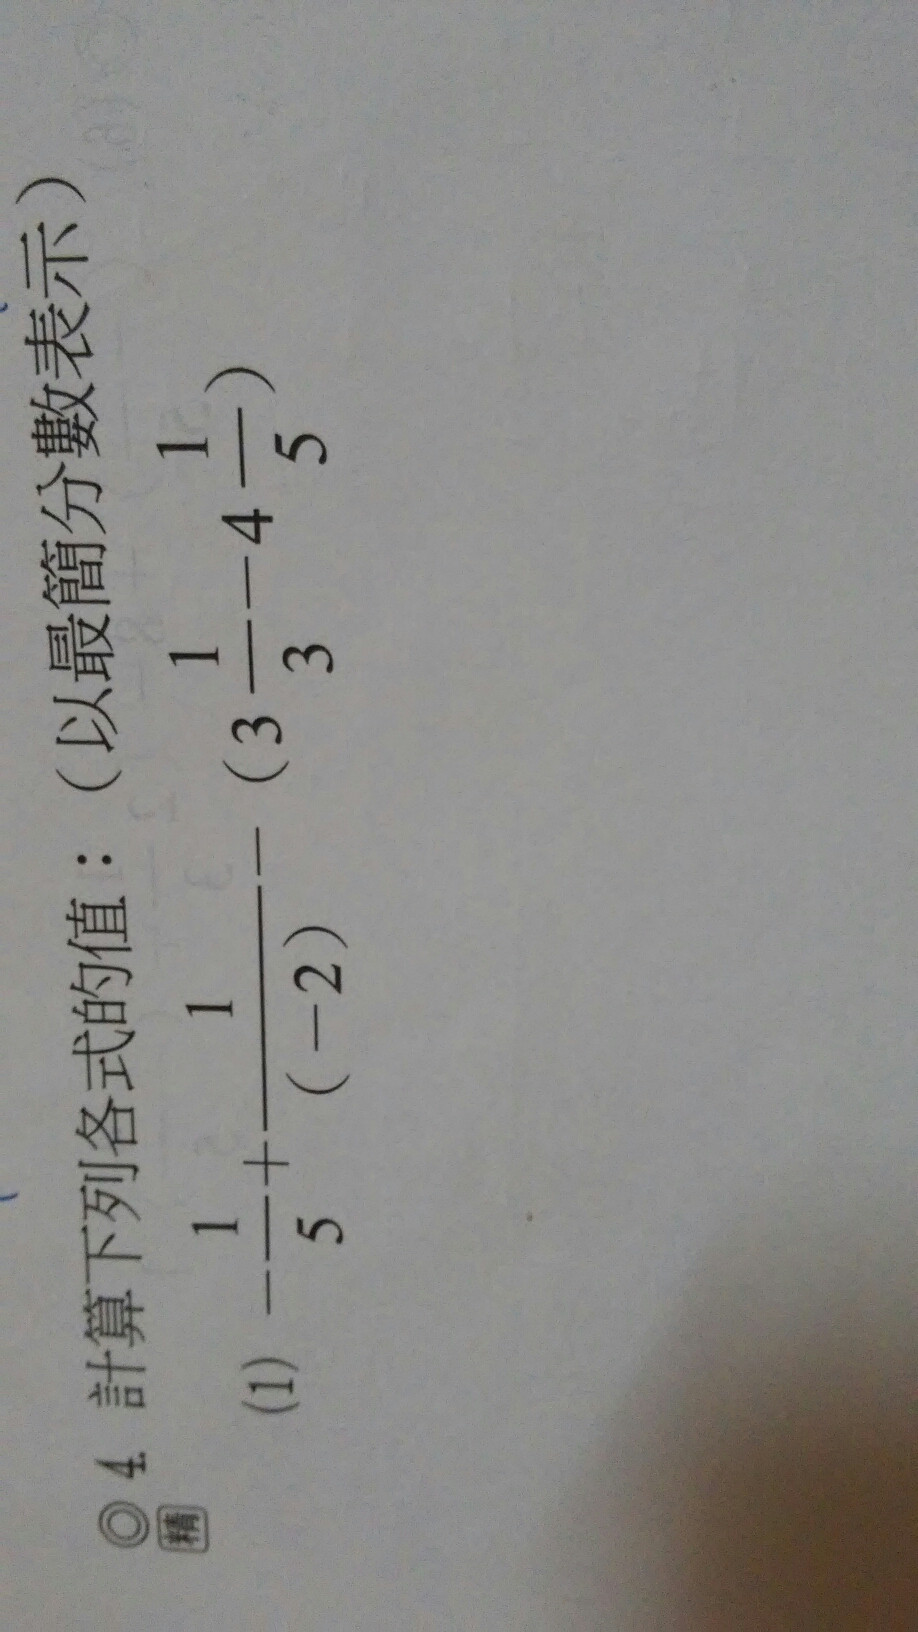 ◎ 4. 計算下列各式的值：（以最簡分數表示）
精
(1) -1/5 + 1/(-2) - (3 1/3 - 4 1/5)